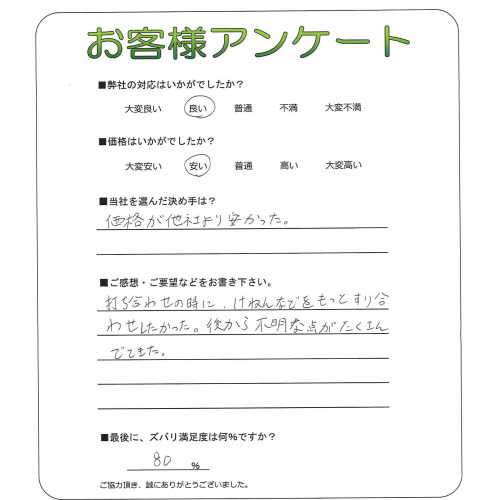 お客様アンケート
■弊社の対応はいかがでしたか？
大変良い 良い 普通 不満 大変不満
■価格はいかがでしたか？
大変安い 安い 普通 高い 大変高い
■当社を選んだ決め手は？
価格が他社より安かった。
■ご感想・ご要望などをお書き下さい。
打ち合わせの時に、けねんなどをもっとすり合
わせしたかった。後から不明な点がたくさん
でてきた。
■最後に、ズバリ満足度は何%ですか？
80 %
ご協力頂き、誠にありがとうございました。